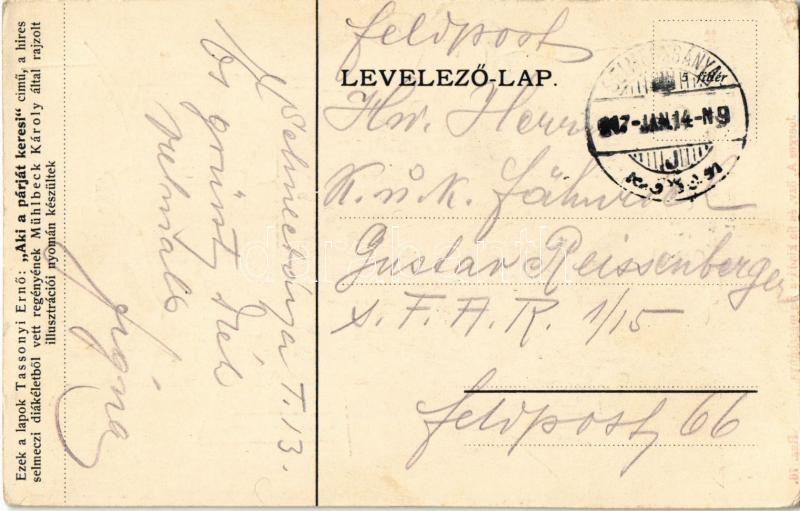 Ezek a lapok Tassonyi Ernő: „Aki a párját keresi" című, a híres
selmeczi diákéletből vett regényének Mühlbeck Károly által rajzolt
illusztrációi nyomán készültek
Selmeczbánya I. 13.
Es grüsst Dich
vielmals
Feldpost
LEVELEZŐ-LAP.
5 fillér
917-JAN.14-N9
Hw. Herrn
K. u. k. Fähnrich
Gustav Reissenberger
S. F. A. R. 1/15
Feldpost 66
darabanth